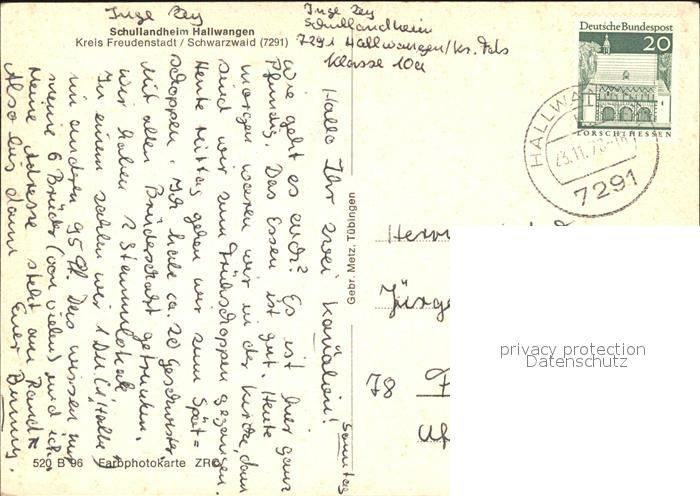 Inge
Schullandheim Hallwangen
Kreis Freudenstadt / Schwarzwald (7291)
Inge
Schullandheim
7291 Hallwangen/Kr. Fds
Klasse 10a
Deutsche Bundespost
20
LORSCH/HESSEN
HALLWA
23.11.7
7291
Sonntag
Hallo Ihr zwei
Wie geht es euch? Es ist hier ganz
pfundig. Das Essen ist gut. Heute
morgen waren wir in der Kirche, dann
sind wir zum Frühschoppen gegangen.
Heute Mittag gehen wir zum Spät=
schoppen. Ich habe ca. 20 Geschwister
Mit allen Bruderschaft getrunken.
Wir haben 2 Stammlokale
In einem zahlen wir 1 DM
im anderen 95 Pf. Das wissen nur
meine 6 Brüder (von vielen) und ich.
Meine Adresse steht am Rand
Also bis dann
Euer
Gebr. Metz, Tübingen
Herrn
Jürge
78
520 B 96 Farbphotokarte ZRC
privacy protection
Datenschutz